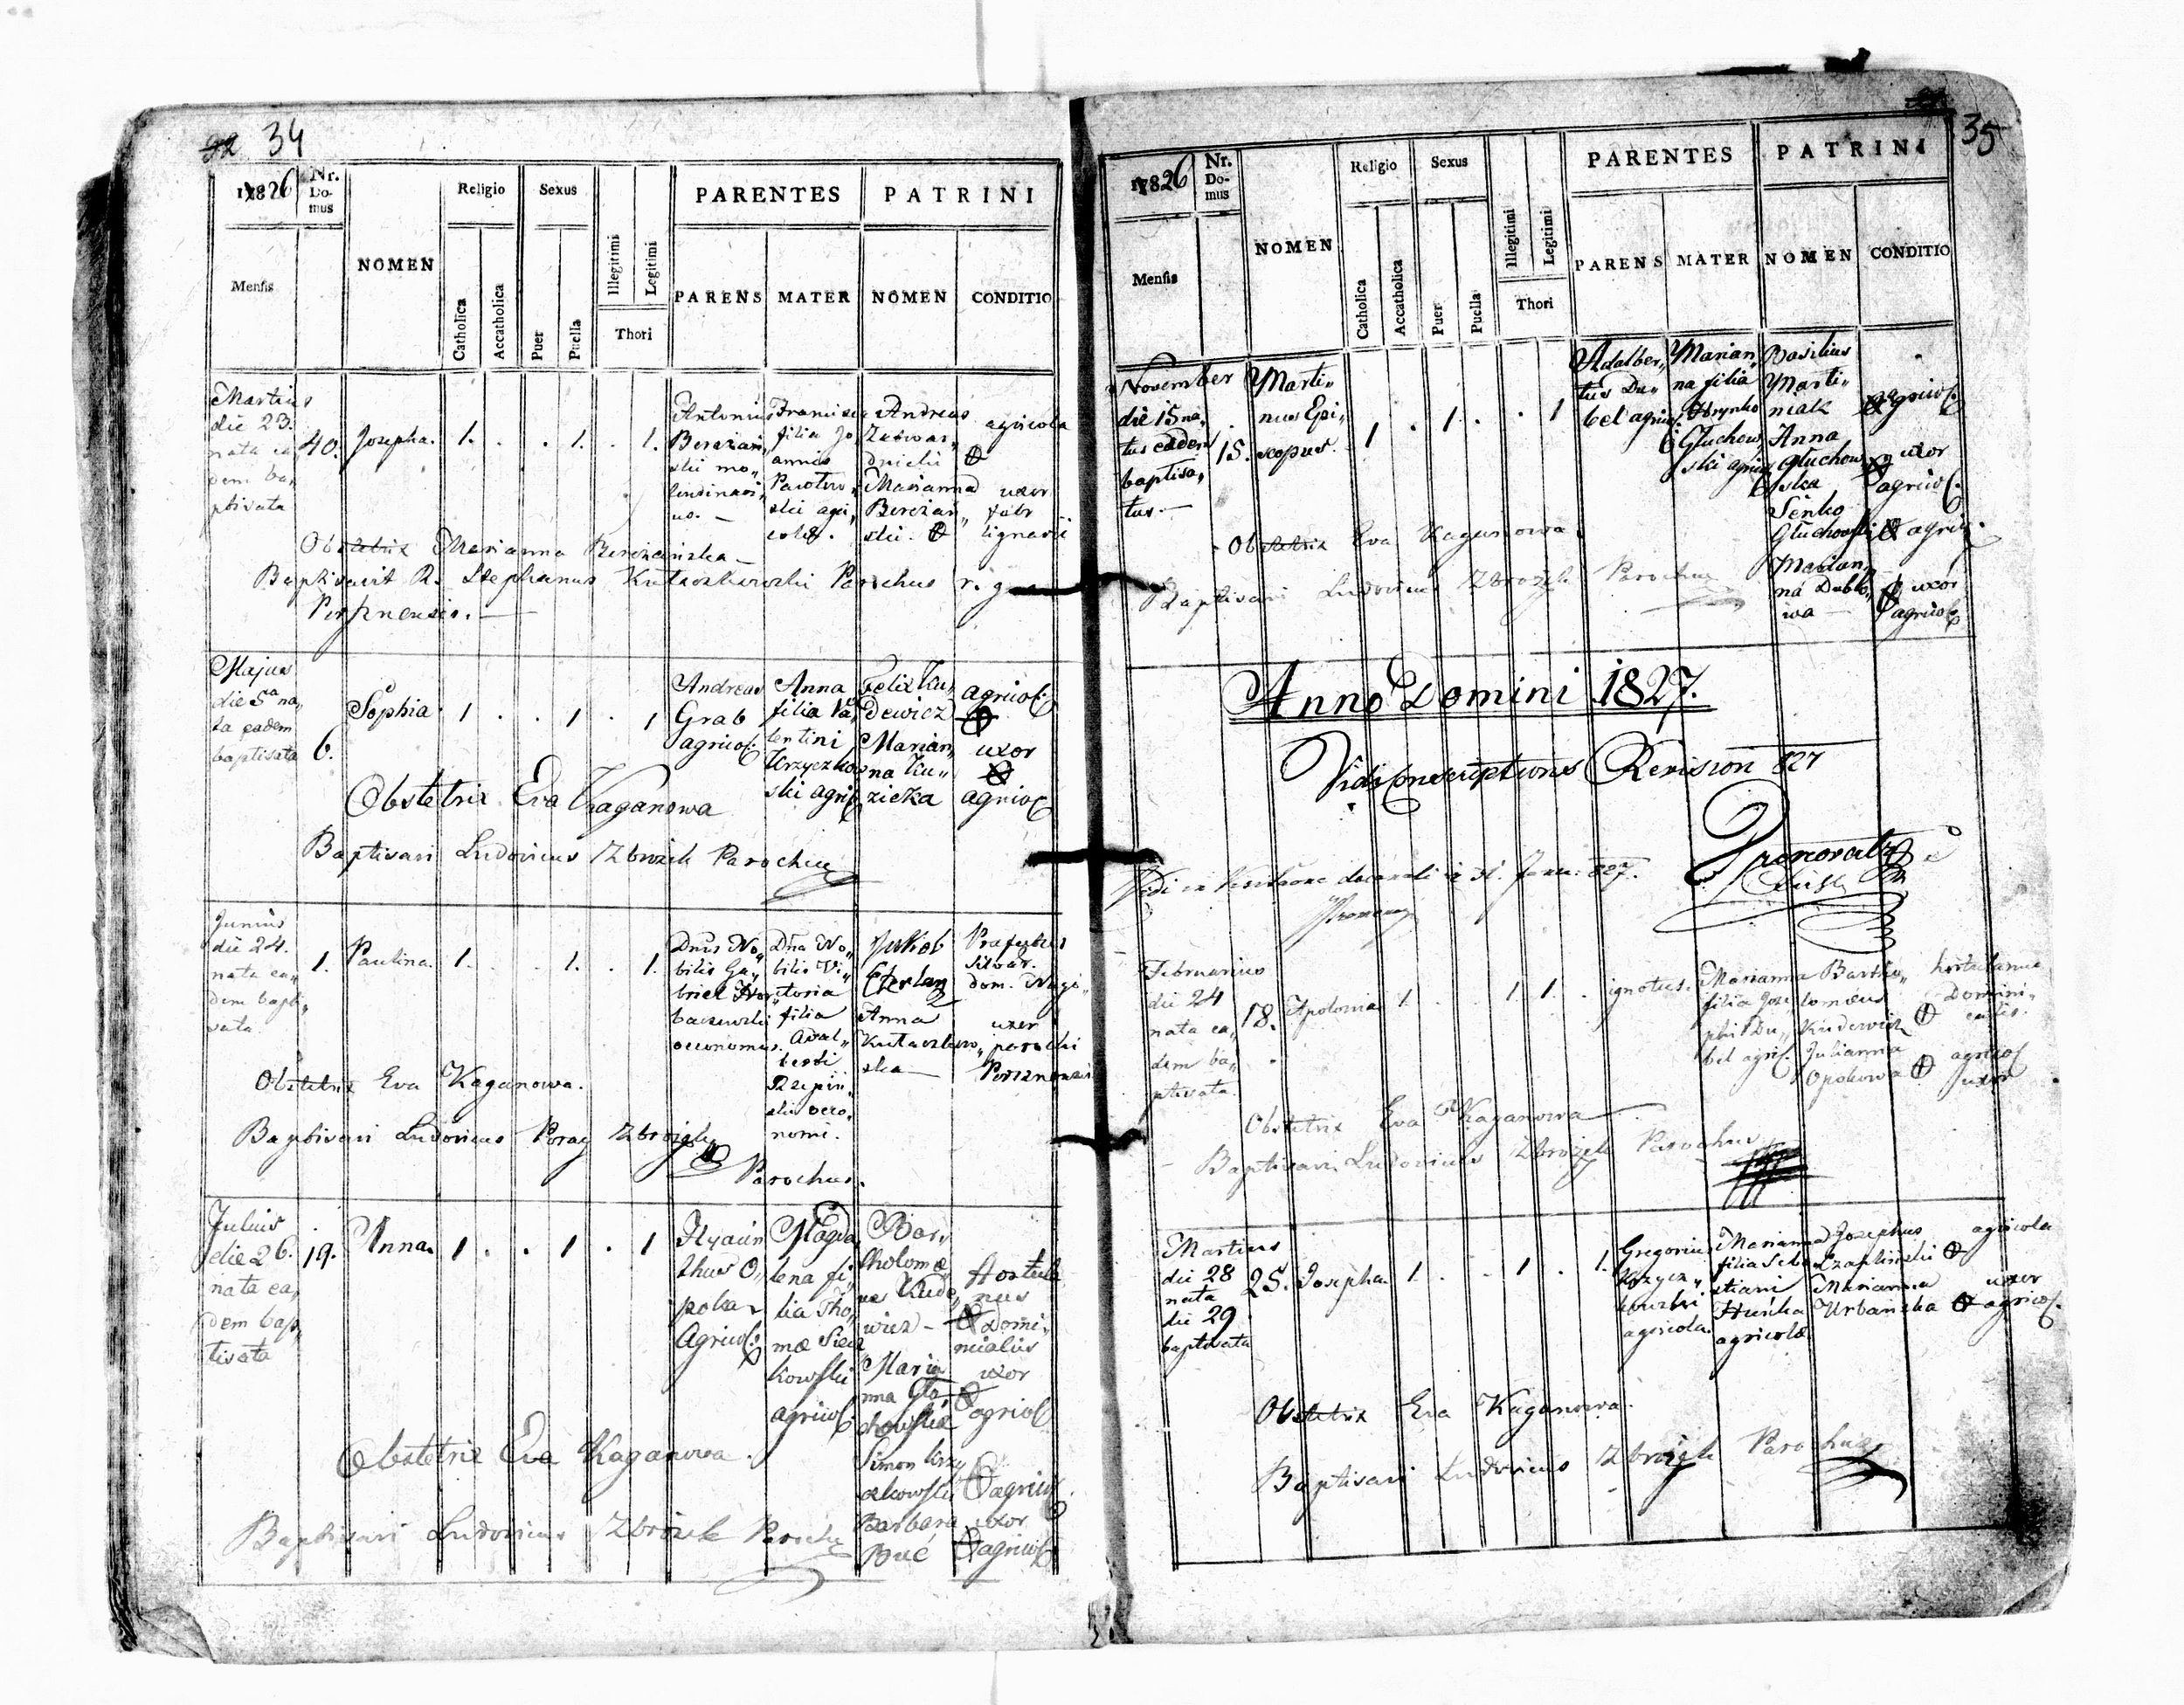 34
1826 Nr. Domus
NOMEN
Religio
Sexus
PARENTES
PATRINI
Mensis
Catholica
Accatholica
Puer
Puella
Illegitimi
Legitimi
Thori
PARENS
MATER
NOMEN
CONDITIO
Martius
die 23.
nata ea
dem ba,
ptisata
40.
Josepha.
1. . . 1. . 1.
Antonius
Bereżań,
ski mo,,
lendinari,
us. —
filia Jo
annis
ski agri,
colæ.
Andreas
Marianna
Bereżań,,
ski.
agricola
uxor
fabr
lignarii
Obstetrix Marianna Bereżańska
Baptisavit R. Stephanus Parochus r. g.
Majus
die 5ª na,,
ta eadem
baptisata
6.
Sophia
1 . . 1 . 1
Andreas
Grab
agricol.
Anna
filia Va,
lentini
Krzyczko,
ski agric
Felix Ku,
dewicz
Marian,,
na Ku,,
zicka
agricol.
uxor
agricol
Obstetrix Eva Kaganowa
Baptisavi Ludovicus Zbrożek Parochus
Junius
die 24.
nata ea,,
dem bapti,,
sata.
1.
Paulina.
1. . . 1. . 1.
Dnus No,,
bilis Ga,,
briel Hor,
oeconomus.
Dna No,,
bilis Vi,,
ctoria
filia
Adal,,
berti
Rzepiń
ski oeco,
nomi.
Jakob
Anna
ska —
Præfectus
silvar.
dom.
uxor
parochi
Obstetrix Eva Kaganowa.
Baptisavi Ludovicus Poray Zbrożek
Parochus.
Julius
die 26.
nata ea,
dem bap,
tisata
19.
Anna.
1 . . 1 . 1
Hyacin
thus O,,
poka
Agricol.
Magda,
lena fi,
lia Tho,
mæ Siecz
kowski
agricol.
Bar,
tholomæ
us Kude,
wicz —
Maria
nna Głu,
chowska
Simon Krzy
czkowski
Barbara
Buć
Hortula
nus
Domi,
nicalis
uxor
agricol
agricol.
uxor
agricol
Obstetrix Eva Kaganowa.
Baptisavi Ludovicus Zbrożek Parochus
35
1826 Nr. Domus
NOMEN
Religio
Sexus
PARENTES
PATRINI
Mensis
Catholica
Accatholica
Puer
Puella
Illegitimi
Legitimi
Thori
PARENS
MATER
NOMEN
CONDITIO
November
die 15 na,
tus eadem
baptisa,
tus. —
15.
Marti,,
nus Epi,,
scopus.
1 . 1. . . 1
Adalber,,
tus Du,,
bel agric.
Marian,,
na filia
Hrynko
Głuchow,
ski agric
Basilius
Marti,,
niak
Anna
Głuchow
ska
Senko
Głuchowski
Marian,
na Dublo,
wa —
agricol.
uxor
agricol.
agric.
uxor
agricol
Obstetrix Eva Kaganowa.
Baptisavi Ludovicus Zbrożek Parochus
Anno Domini 1827.
Vidi Conscriptions Revision 827
Februarius
die 24
nata ea,
dem ba,
ptisata.
18.
Apolonia
1. . . 1 1 .
ignotus.
Marianna
filia Jose,
phi Du,,
bel agric.
Bartho,,
lomæus
Kudewicz
Julianna
Opokowa
hortulanus
Domini,,
calis.
agricol
uxor
Obstetrix Eva Kaganowa
Baptisavi Ludovicus Zbrożek Parochus
Martius
die 28
nata
die 29
baptisata
25.
Josepha.
1. . . 1 . 1.
Gregorius
Krzycz,,
kowski
agricola.
Marianna
filia Seba
stiani
Huńka
agricolæ
Josephus
Czapliński
Marianna
Urbańska
agricola
uxor
agricol.
Obstetrix Eva Kaganowa.
Baptisavi Ludovicus Zbrożek Parochus